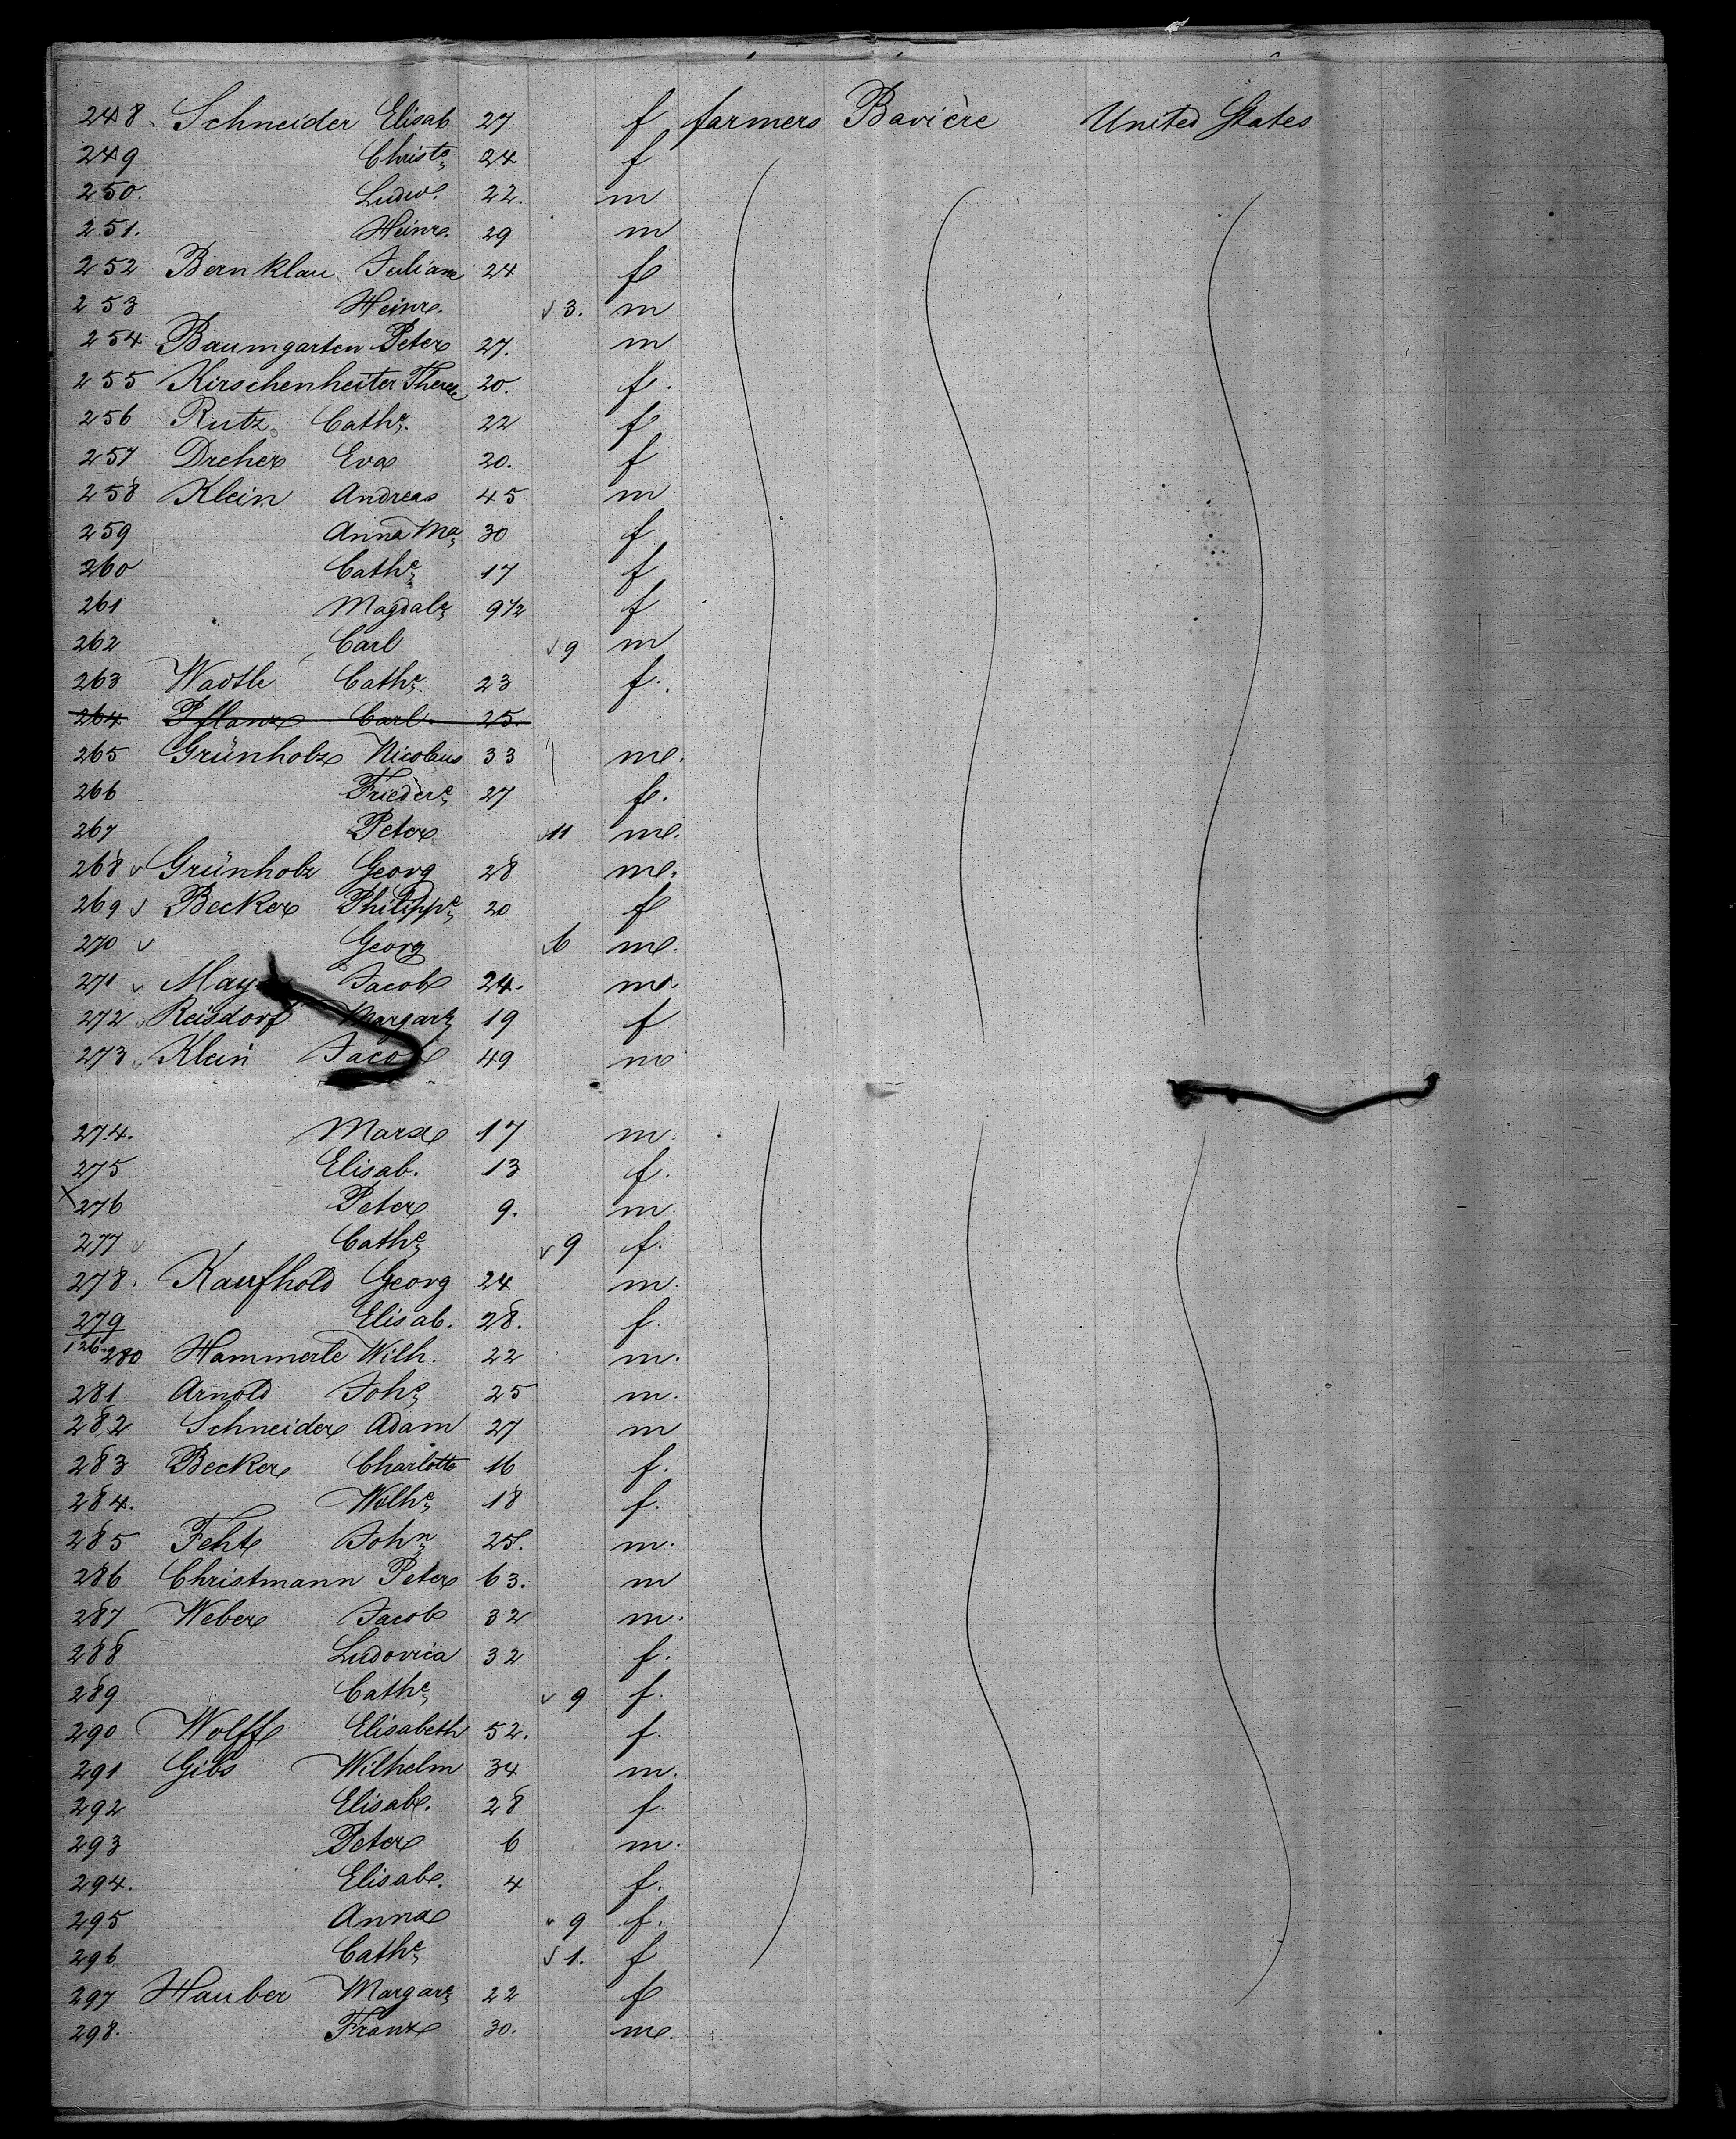 248. Schneider Elisab 27 f farmers Bavière United States
249 Christe 24 f
250. Ludw. 22. m
251. Heinr. 29 m
252 Bernklau Juliane 24 f
253 Heinr. √ 3. m
254 Baumgarten Peter 27. m
255 Kirschenheiter Therese 20. f.
256 Rutz Cathe. 22 f
257 Dreher Eva 20. f
258 Klein Andreas 45 m
259 Anna Ma 30 f
260 Cathe 17 f
261 Magdale 9 1/2 f
262 Carl √ 9 m
263 Cathe 23 f.
264 Pflanz Carl 25.
265 Grünholz Nicolaus 33 m.
266 Friedere 27 f.
267 Peter √ 11 m.
268 √ Grünholz Georg 28 m.
269 √ Becker Philippe 20 f
270 √ Georg 6 m.
271 √ May Jacob 24. m.
272 √ Reisdorf Margare 19 f
273 √ Klein Jacob 49 m
274. Marx 17 m.
275 Elisab. 13 f.
x 276 Peter 9. m.
277 √ Cathe √ 9 f.
278. Kaufhold Georg 24 m.
279 Elisab. 28. f.
126. 280 Hammerle Wilh. 22 m.
281 Arnold Johe 25 m.
282 Schneider Adam 27 m
283 Becker Charlotte 16 f.
284. Wilhe 18 f.
285 Feht John 25. m.
286 Christmann Peter 63. m
287 Weber Jacob 32 m.
288 Ludovica 32 f.
289 Cathe √ 9 f.
290 Wolff Elisabeth 52. f.
291 Gibs Wilhelm 34 m.
292 Elisab. 28 f.
293 Peter 6 m.
294. Elisab. 4 f.
295 Anna √ 9 f.
296 Cathe √ 1. f
297 Hauber Margare 22 f
298. Franz 30. m.